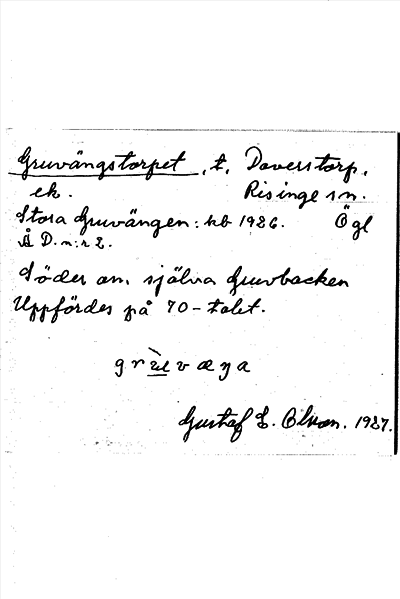 Gruvängstorpet, t. Daverstorp,
ek. Risinge sn.
Stora Gruvängen: kb 1926. Ögl
Å D. n:r 2.
Söder om själva Gruvbacken
Uppfördes på 70-talet.
grùvæŋa
Gustaf E. Olsson. 1927.